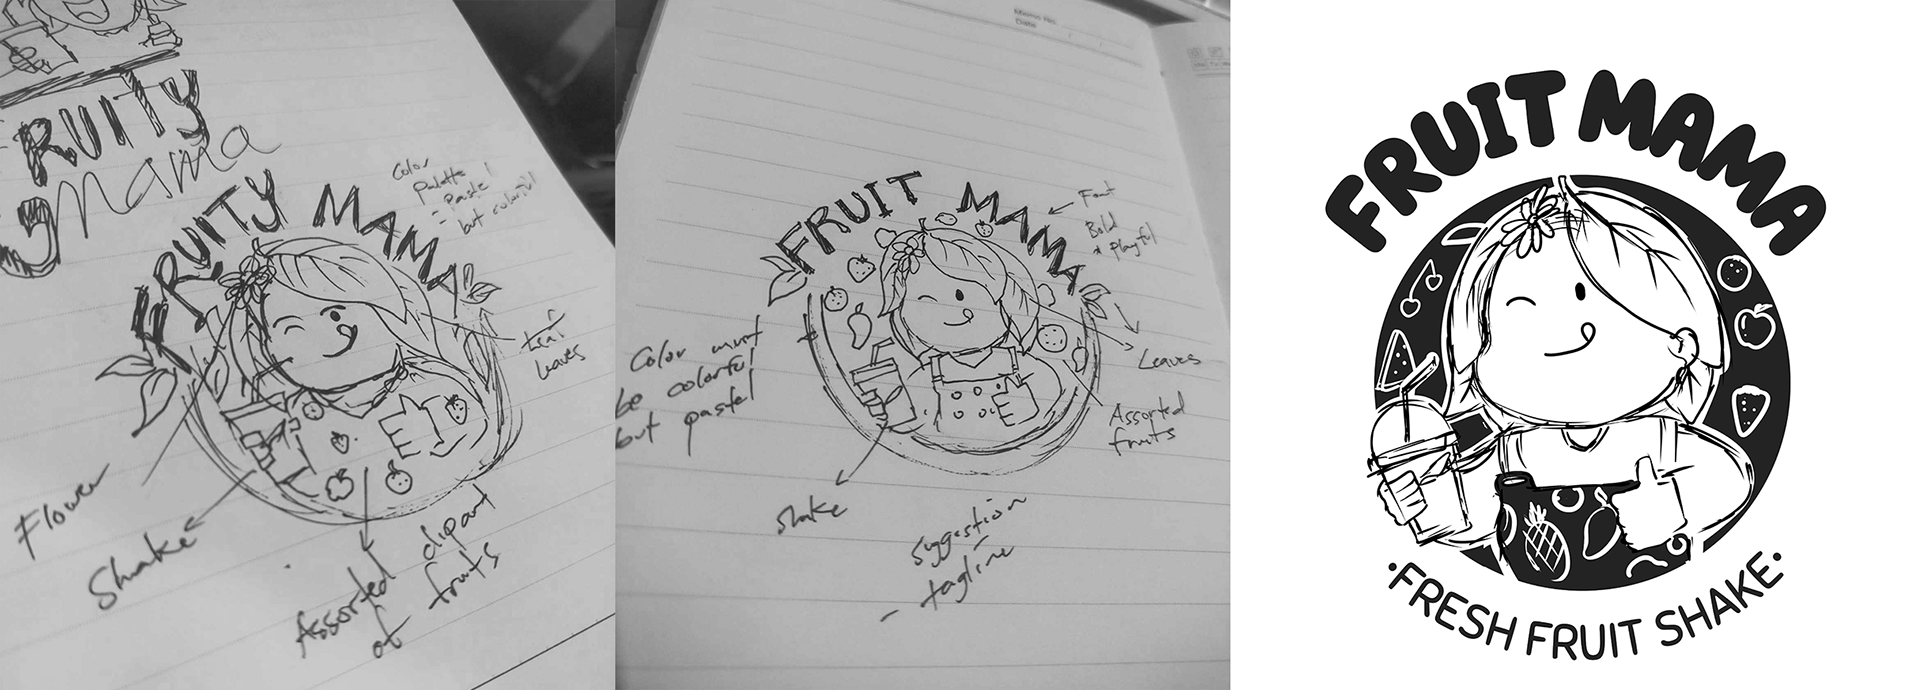 FRUITY
Mama
FRUITY MAMA
Color
Palette
- Pastel
but colorful
Leaf
leaves
Flower
Shake
Assorted clipart
of fruits
Memo No.
Date
FRUIT MAMA
Font
Bold
& Playful
Color must
be colorful
but pastel
Leaves
Assorted
fruits
Shake
Suggestion
- tagline
FRUIT MAMA
·FRESH FRUIT SHAKE·